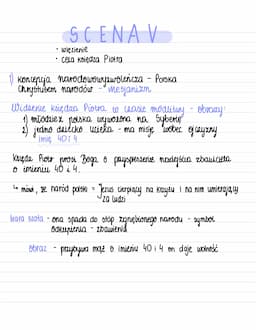 SCENA V
• więzienie
• cela księdza Piotra
1) koncepcja narodowowyzwoleńcza - Polska
Chrystusem narodów - mesjanizm
Widzenie księdza Piotra w czasie modlitwy - obrazy:
1) młodzież polska wywożona na Syberię
2) jedno dziecko ucieka - ma misję wobec ojczyzny
imię 40 i 4
Ksiądz Piotr prosi Boga o przyspieszenie nadejścia zbawiciela
o imieniu 40 i 4.
↳ mówi, że naród polski = Jezus cierpiący na krzyżu i na nim umierający
za ludzi
biała szata - ona spada do stóp zgnębionego narodu - symbol
odkupienia - zbawienia
obraz - przybywa mąż o imieniu 40 i 4 on daje wolność